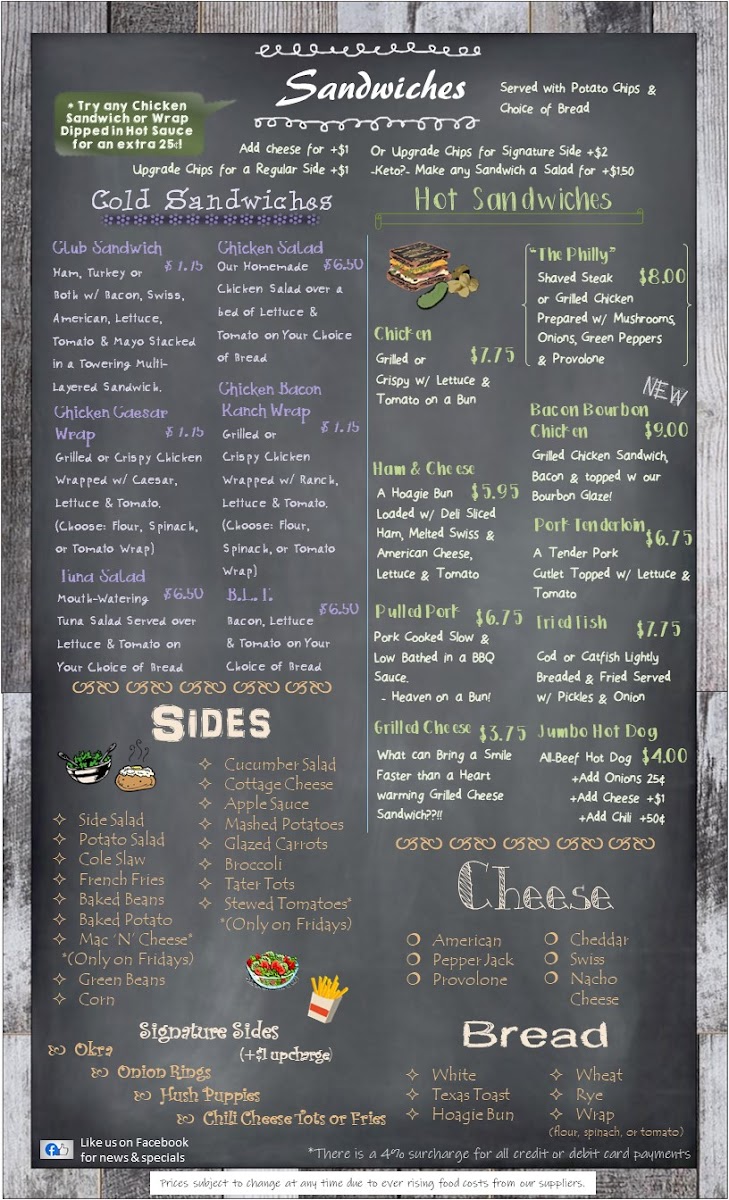 Sandwiches
Served with Potato Chips &
Choice of Bread
* Try any Chicken
Sandwich or Wrap
Dipped in Hot Sauce
for an extra 25¢!
Add cheese for +$1
Upgrade Chips for a Regular Side +$1
Or Upgrade Chips for Signature Side +$2
-Keto?- Make any Sandwich a Salad for +$1.50
Cold Sandwiches
Club Sandwich
$7.75
Ham, Turkey or
Both w/ Bacon, Swiss,
American, Lettuce,
Tomato & Mayo Stacked
in a Towering Multi-
Layered Sandwich.
Chicken Caesar
Wrap $7.75
Grilled or Crispy Chicken
Wrapped w/ Caesar,
Lettuce & Tomato.
(Choose: Flour, Spinach,
or Tomato Wrap)
Tuna Salad
Mouth-Watering $6.50
Tuna Salad Served over
Lettuce & Tomato on
Your Choice of Bread
Chicken Salad
Our Homemade $6.50
Chicken Salad over a
bed of Lettuce &
Tomato on Your Choice
of Bread
Chicken Bacon
Ranch Wrap
Grilled or $7.75
Crispy Chicken
Wrapped w/ Ranch,
Lettuce & Tomato.
(Choose: Flour,
Spinach, or Tomato
Wrap)
B.L.T.
$6.50
Bacon, Lettuce
& Tomato on Your
Choice of Bread
Hot Sandwiches
Chicken
Grilled or $7.75
Crispy w/ Lettuce &
Tomato on a Bun
Ham & Cheese
A Hoagie Bun $5.95
Loaded w/ Deli Sliced
Ham, Melted Swiss &
American Cheese,
Lettuce & Tomato
Pulled Pork $6.75
Pork Cooked Slow &
Low Bathed in a BBQ
Sauce.
- Heaven on a Bun!
Grilled Cheese $3.75
What can Bring a Smile
Faster than a Heart
warming Grilled Cheese
Sandwich??!!
"The Philly"
Shaved Steak $8.00
or Grilled Chicken
Prepared w/ Mushrooms,
Onions, Green Peppers
& Provolone
NEW
Bacon Bourbon
Chicken $9.00
Grilled Chicken Sandwich,
Bacon & topped w our
Bourbon Glaze!
Pork Tenderloin
$6.75
A Tender Pork
Cutlet Topped w/ Lettuce &
Tomato
Fried Fish
$7.75
Cod or Catfish Lightly
Breaded & Fried Served
w/ Pickles & Onion
Jumbo Hot Dog
All-Beef Hot Dog $4.00
+Add Onions 25¢
+Add Cheese +$1
+Add Chili +50¢
SIDES
Side Salad
Potato Salad
Cole Slaw
French Fries
Baked Beans
Baked Potato
Mac 'N' Cheese*
*(Only on Fridays)
Green Beans
Corn
Cucumber Salad
Cottage Cheese
Apple Sauce
Mashed Potatoes
Glazed Carrots
Broccoli
Tater Tots
Stewed Tomatoes*
*(Only on Fridays)
Signature Sides
(+$1 upcharge)
Okra
Onion Rings
Hush Puppies
Chili Cheese Tots or Fries
Cheese
American
Pepper Jack
Provolone
Cheddar
Swiss
Nacho
Cheese
Bread
White
Texas Toast
Hoagie Bun
Wheat
Rye
Wrap
(flour, spinach, or tomato)
Like us on Facebook
for news & specials
*There is a 4% surcharge for all credit or debit card payments
Prices subject to change at any time due to ever rising food costs from our suppliers.